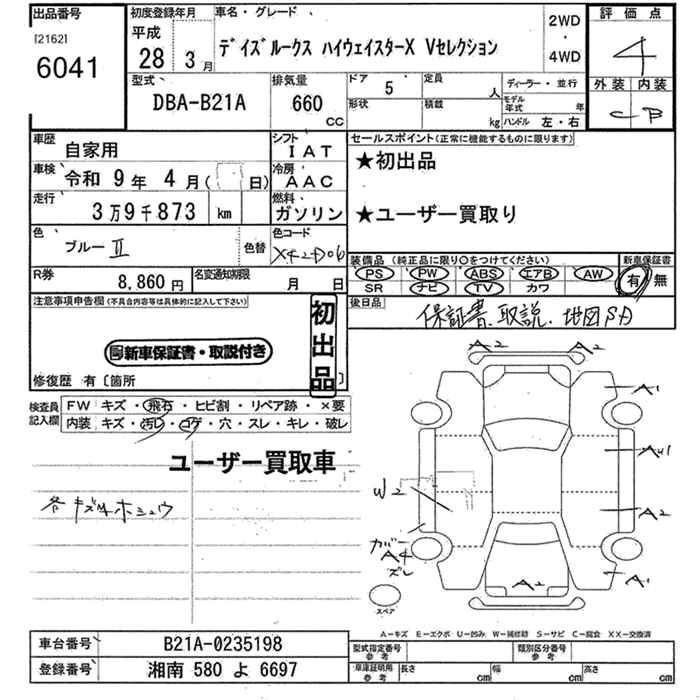 出品番号
[2162]
6041
初度登録年月
平成
28 3月
車名・グレード
デイズルークス ハイウェイスターX Vセレクション
2WD
・
4WD
評価点
4
外装 内装
C B
型式
DBA-B21A
排気量
660
CC
ドア 5
定員 人
形状
積載 kg
ディーラー・並行
モデル年式 年
ハンドル 左・右
車歴 自家用
シフト IAT
車検 令和 9年 4月( 日)
冷房 AAC
走行 3万9千873 km
燃料 ガソリン
色 ブルーII
色替
色コード
R券 8,860円
名変通知期限 月 日
セールスポイント(正常に機能するものに限ります)
★初出品
★ユーザー買取り
装備品 (純正品に限り○をつけてください)
PS PW ABS エアB AW
SR ナビ TV カワ
新車保証書
有 無
後日品
保証書、取説、地図SD
注意事項申告欄(不具合内容等は具体的に記入して下さい)
初出品
新車保証書・取説付き
修復歴 有〔箇所
検査員記入欄
FW キズ・飛石・ヒビ割・リペア跡・×要
内装 キズ・汚レ・コゲ・穴・スレ・キレ・破レ
ユーザー買取車
各キズ外ホシュウ
A2 A2
A1
AU1
W2
A2
カバー
A4
ズレ
A1
A2
スペア
A-キズ E-エクボ U-凹み W-補修跡 S-サビ C-腐食 XX-交換済
車台番号 B21A-0235198
登録番号 湘南 580 よ 6697
型式指定番号
参考
類別区分番号
参考
車庫証明用
参考
長さ cm
幅 cm
高さ cm